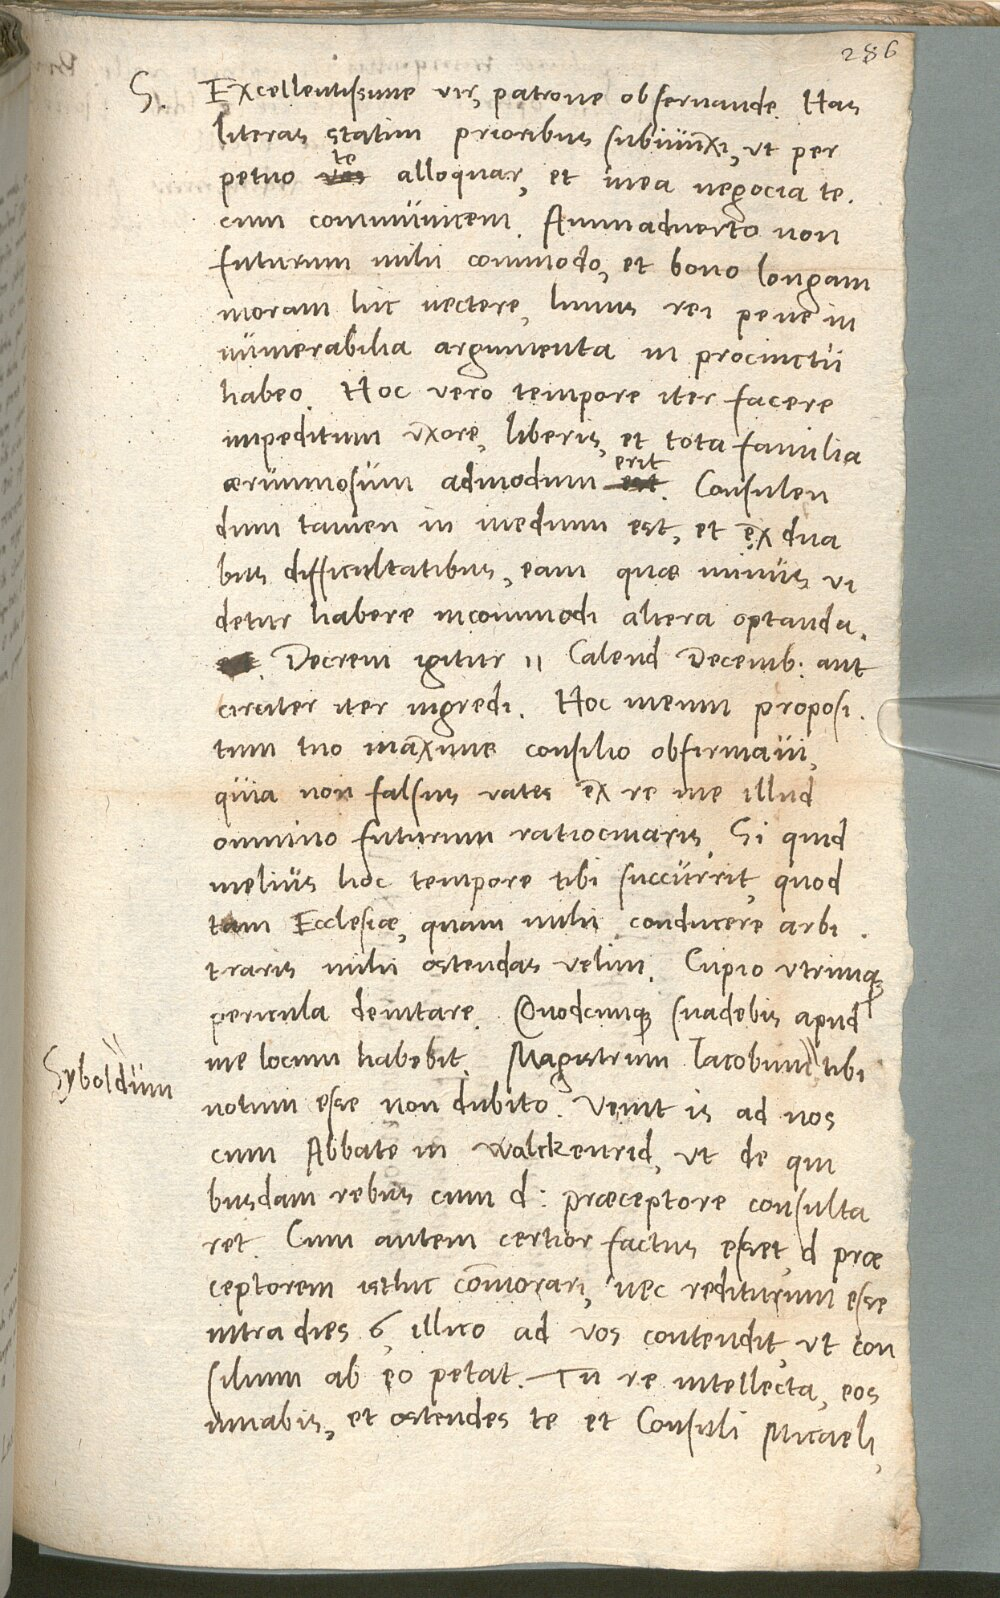 286
S. Excellentissime vir, patrone obseruande. Has
literas statim prioribus subiunxi, vt per
petuo vos te alloquar, et mea negocia te.
cum communicem. Animaduerto non
futurum mihi commodo, et bono longam
moram hic nectere, huius rei pene in
numerabilia argumenta in procinctu
habeo. Hoc vero tempore iter facere
impeditum vxore, liberis, et tota familia
ærumnosum admodum est erit. Consulen
dum tamen in medium est, et ex dua
bus difficultatibus, eam quæ minus vi
detur habere incommodi altera optanda.
Decrevi igitur 11 Calend Decemb: aut
circiter iter ingredi. Hoc meum proposi.
tum tuo maxime consilio obfirmaui,
quia non falsus vates ex re me illud
omnino futurum ratiocinaris. Si quid
melius hoc tempore tibi succurrit, quod
tam Ecclesiæ, quam mihi conducere arbi.
traris mihi ostendas velim. Cupio vtrinq;
pericula deuitare. Quodcunq; suadebis apud
me locum habebit. Magistrum Iacobum \\ tibi
\\ Syboldum
notum esse non dubito. Venit is ad nos
cum Abbate in walckenrid, vt de qui
busdam rebus cum d: præceptore consulta
ret. Cum autem certior factus esset, d præ
ceptorem isthic com̄orari, nec rediturum esse
intra dies 6, illico ad vos contendit, vt con
silium ab eo petat. Tu re intellecta, eos
iuuabis, et ostendes te et Consuli Micaeli,